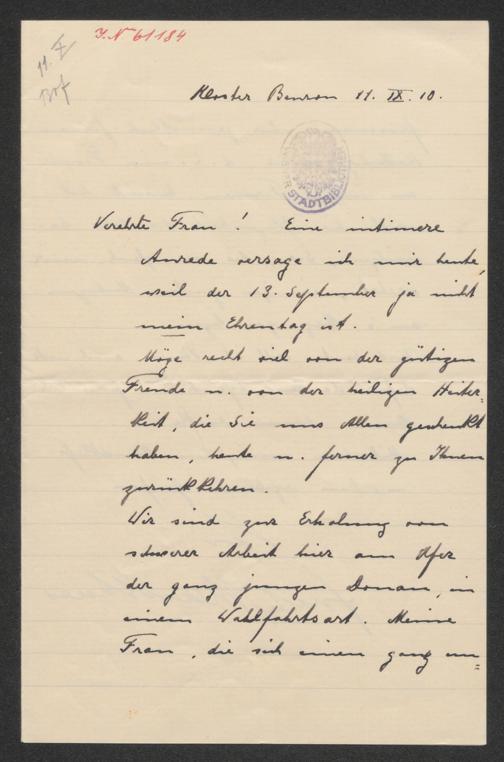 I.N 61184
11. X
Kloster Beuron 11. IX. 10.
STADTBIBLIOTHEK
Verehrte Frau! Eine intimere
Anrede versage ich mir heute,
weil der 13. September ja nicht
mein Ehrentag ist.
Möge recht viel von der gütigen
Freude u. von der heiligen Heiter-
keit, die Sie uns Allen geschenkt
haben, heute u. ferner zu Ihnen
zurückkehren.
Wir sind zur Erholung von
schwerer Arbeit hier am Ufer
der ganz jungen Donau, in
einem Wahlfahrtsort. Meine
Frau, die sich einen ganz un=